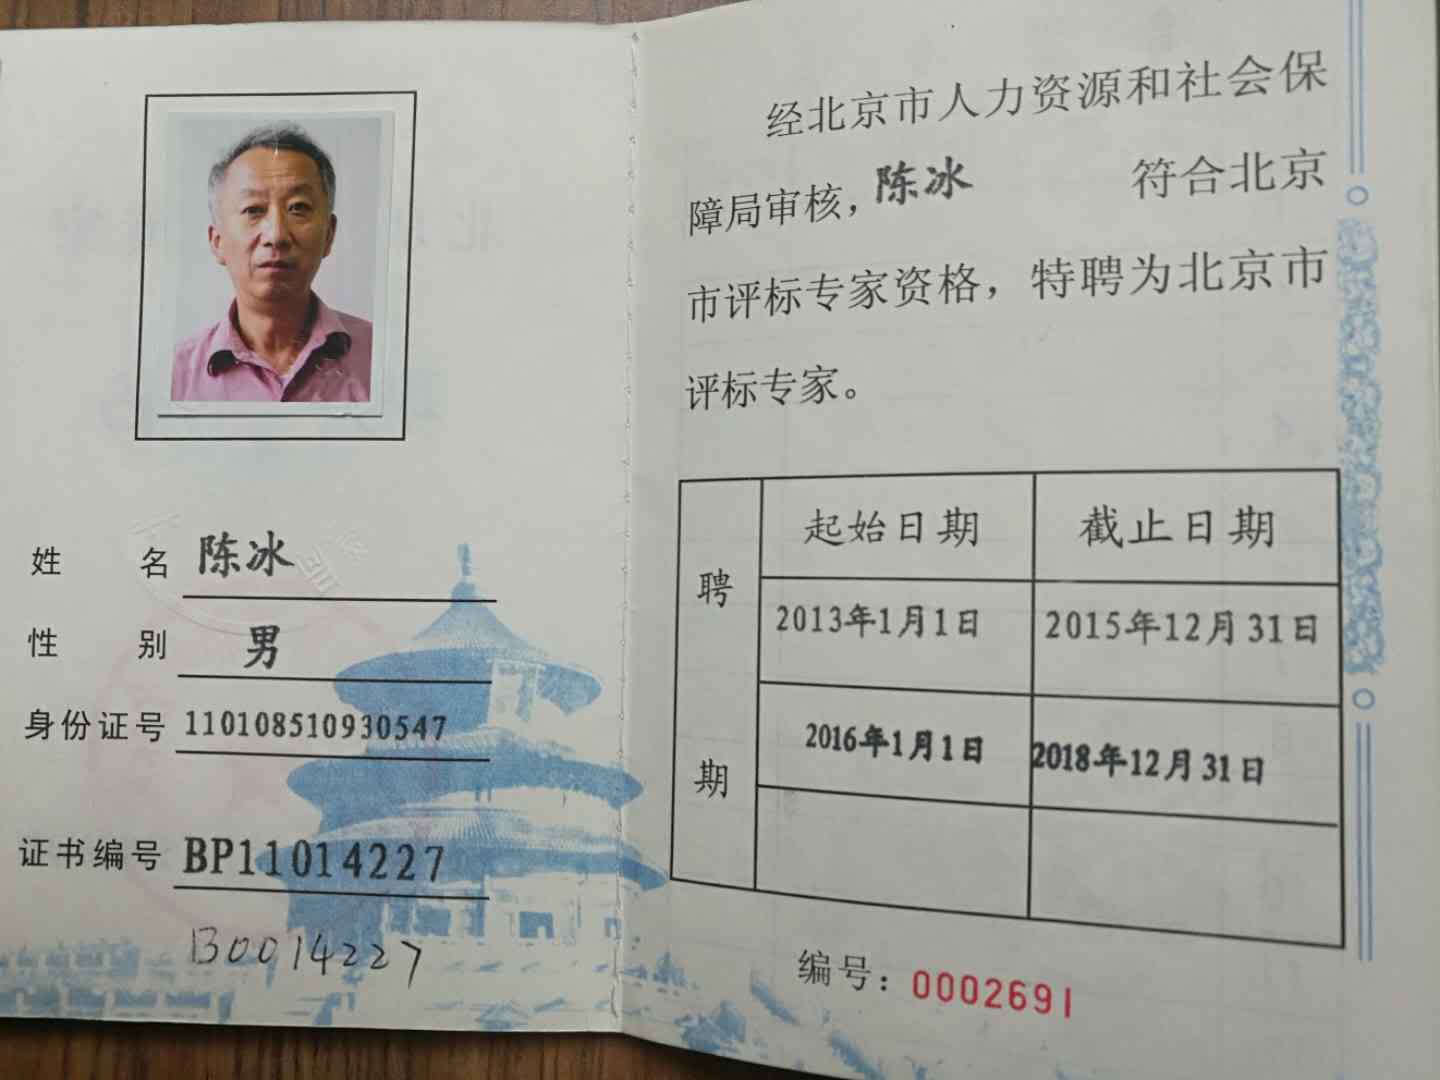 姓 名 陈冰
性 别 男
身份证号 110108510930547
证书编号 BP11014227
B0014227
经北京市人力资源和社会保
障局审核，陈冰 符合北京
市评标专家资格，特聘为北京市
评标专家。
聘期
起始日期 截止日期
2013年1月1日 2015年12月31日
2016年1月1日 2018年12月31日
编号：0002691